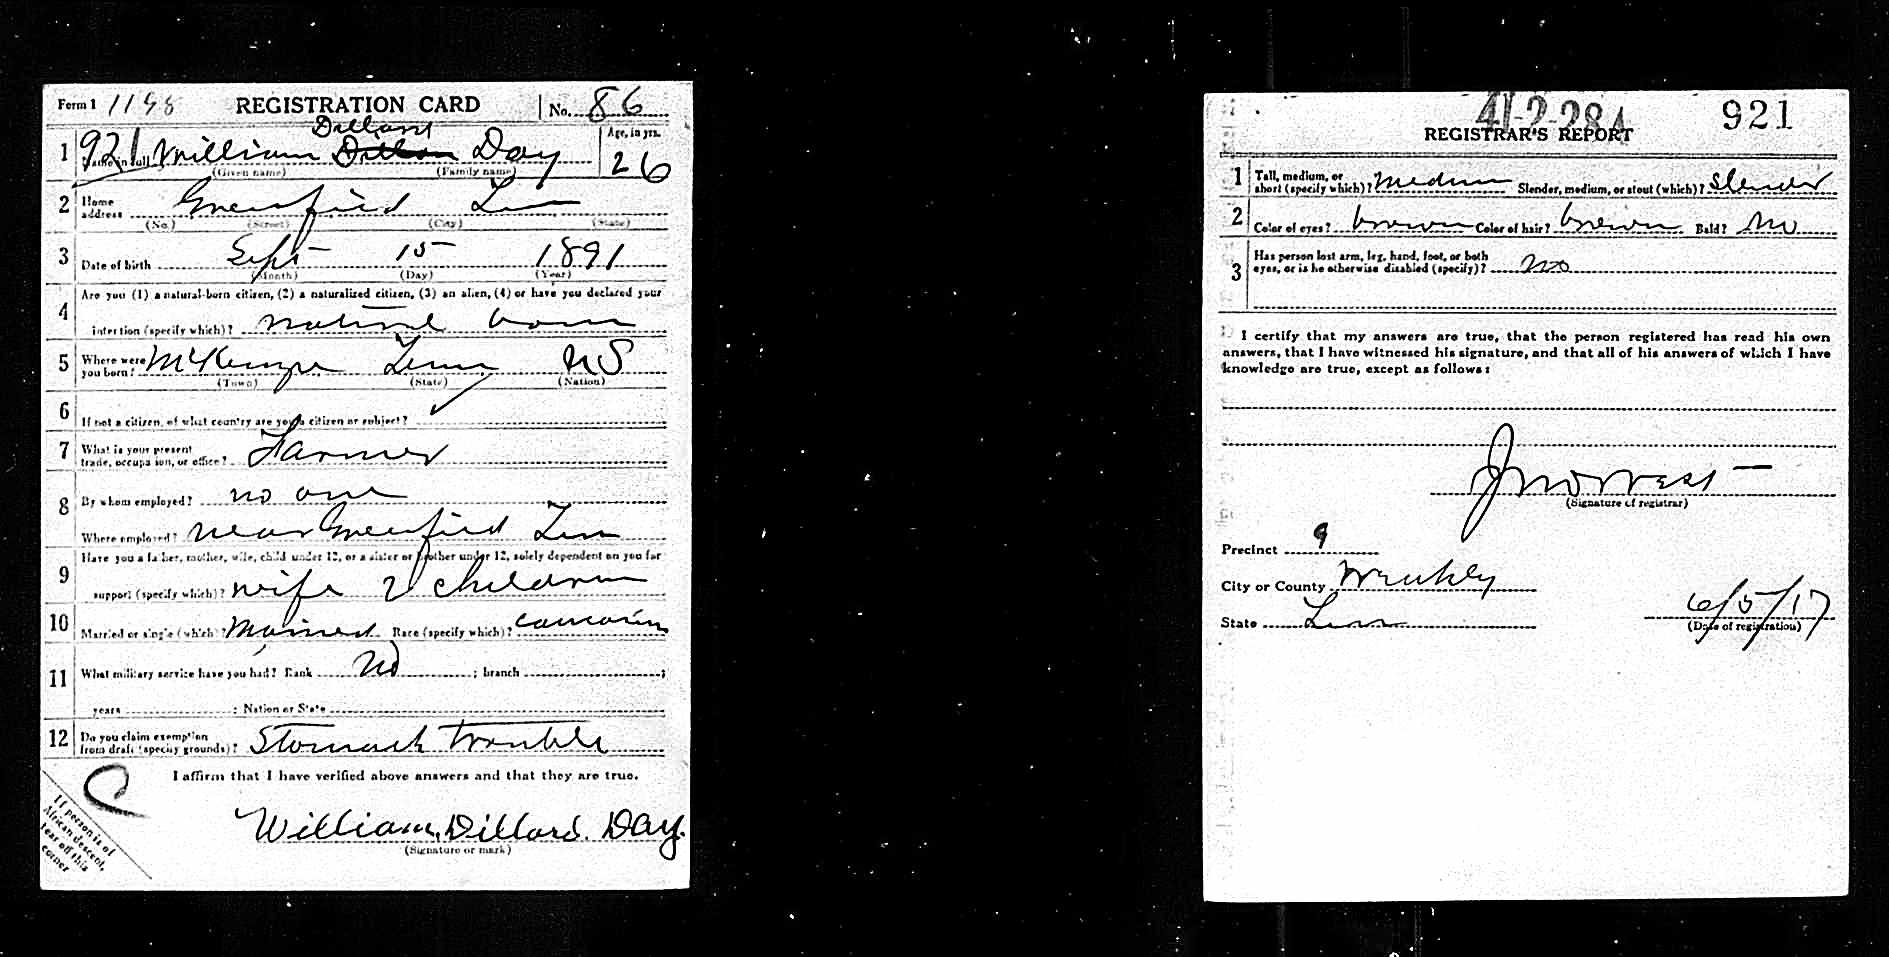 Form 1 1198 REGISTRATION CARD No. 86
Dillard
1 921 Name in full William Dillon Day Age, in yrs. 26
(Given name) (Family name)
2 Home address Greenfield Tenn
(No.) (Street) (City) (State)
3 Date of birth Sept 15 1891
(Month) (Day) (Year)
4 Are you (1) a natural-born citizen, (2) a naturalized citizen, (3) an alien, (4) or have you declared your
intention (specify which)? natural born
5 Where were you born? McKenzie Tenn US
(Town) (State) (Nation)
6 If not a citizen, of what country are you a citizen or subject?
7 What is your present trade, occupation, or office? Farmer
8 By whom employed? no one
Where employed? near Greenfield Tenn
9 Have you a father, mother, wife, child under 12, or a sister or brother under 12, solely dependent on you for
support (specify which)? wife 2 children
10 Married or single (which)? Married Race (specify which)? caucasian
11 What military service have you had? Rank No ; branch ;
years ; Nation or State
12 Do you claim exemption from draft (specify grounds)? Stomach trouble
I affirm that I have verified above answers and that they are true.
William Dillard Day.
(Signature or mark)
If person is of
African descent,
tear off this
corner
41-2-28 A 921
REGISTRAR'S REPORT
1 Tall, medium, or short (specify which)? medium Slender, medium, or stout (which)? Slender
2 Color of eyes? brown Color of hair? brown Bald? No
3 Has person lost arm, leg, hand, foot, or both
eyes, or is he otherwise disabled (specify)? No
I certify that my answers are true, that the person registered has read his own
answers, that I have witnessed his signature, and that all of his answers of which I have
knowledge are true, except as follows:
Jno West
(Signature of registrar)
Precinct 9
City or County Weakley
State Tenn 6/5/17
(Date of registration)